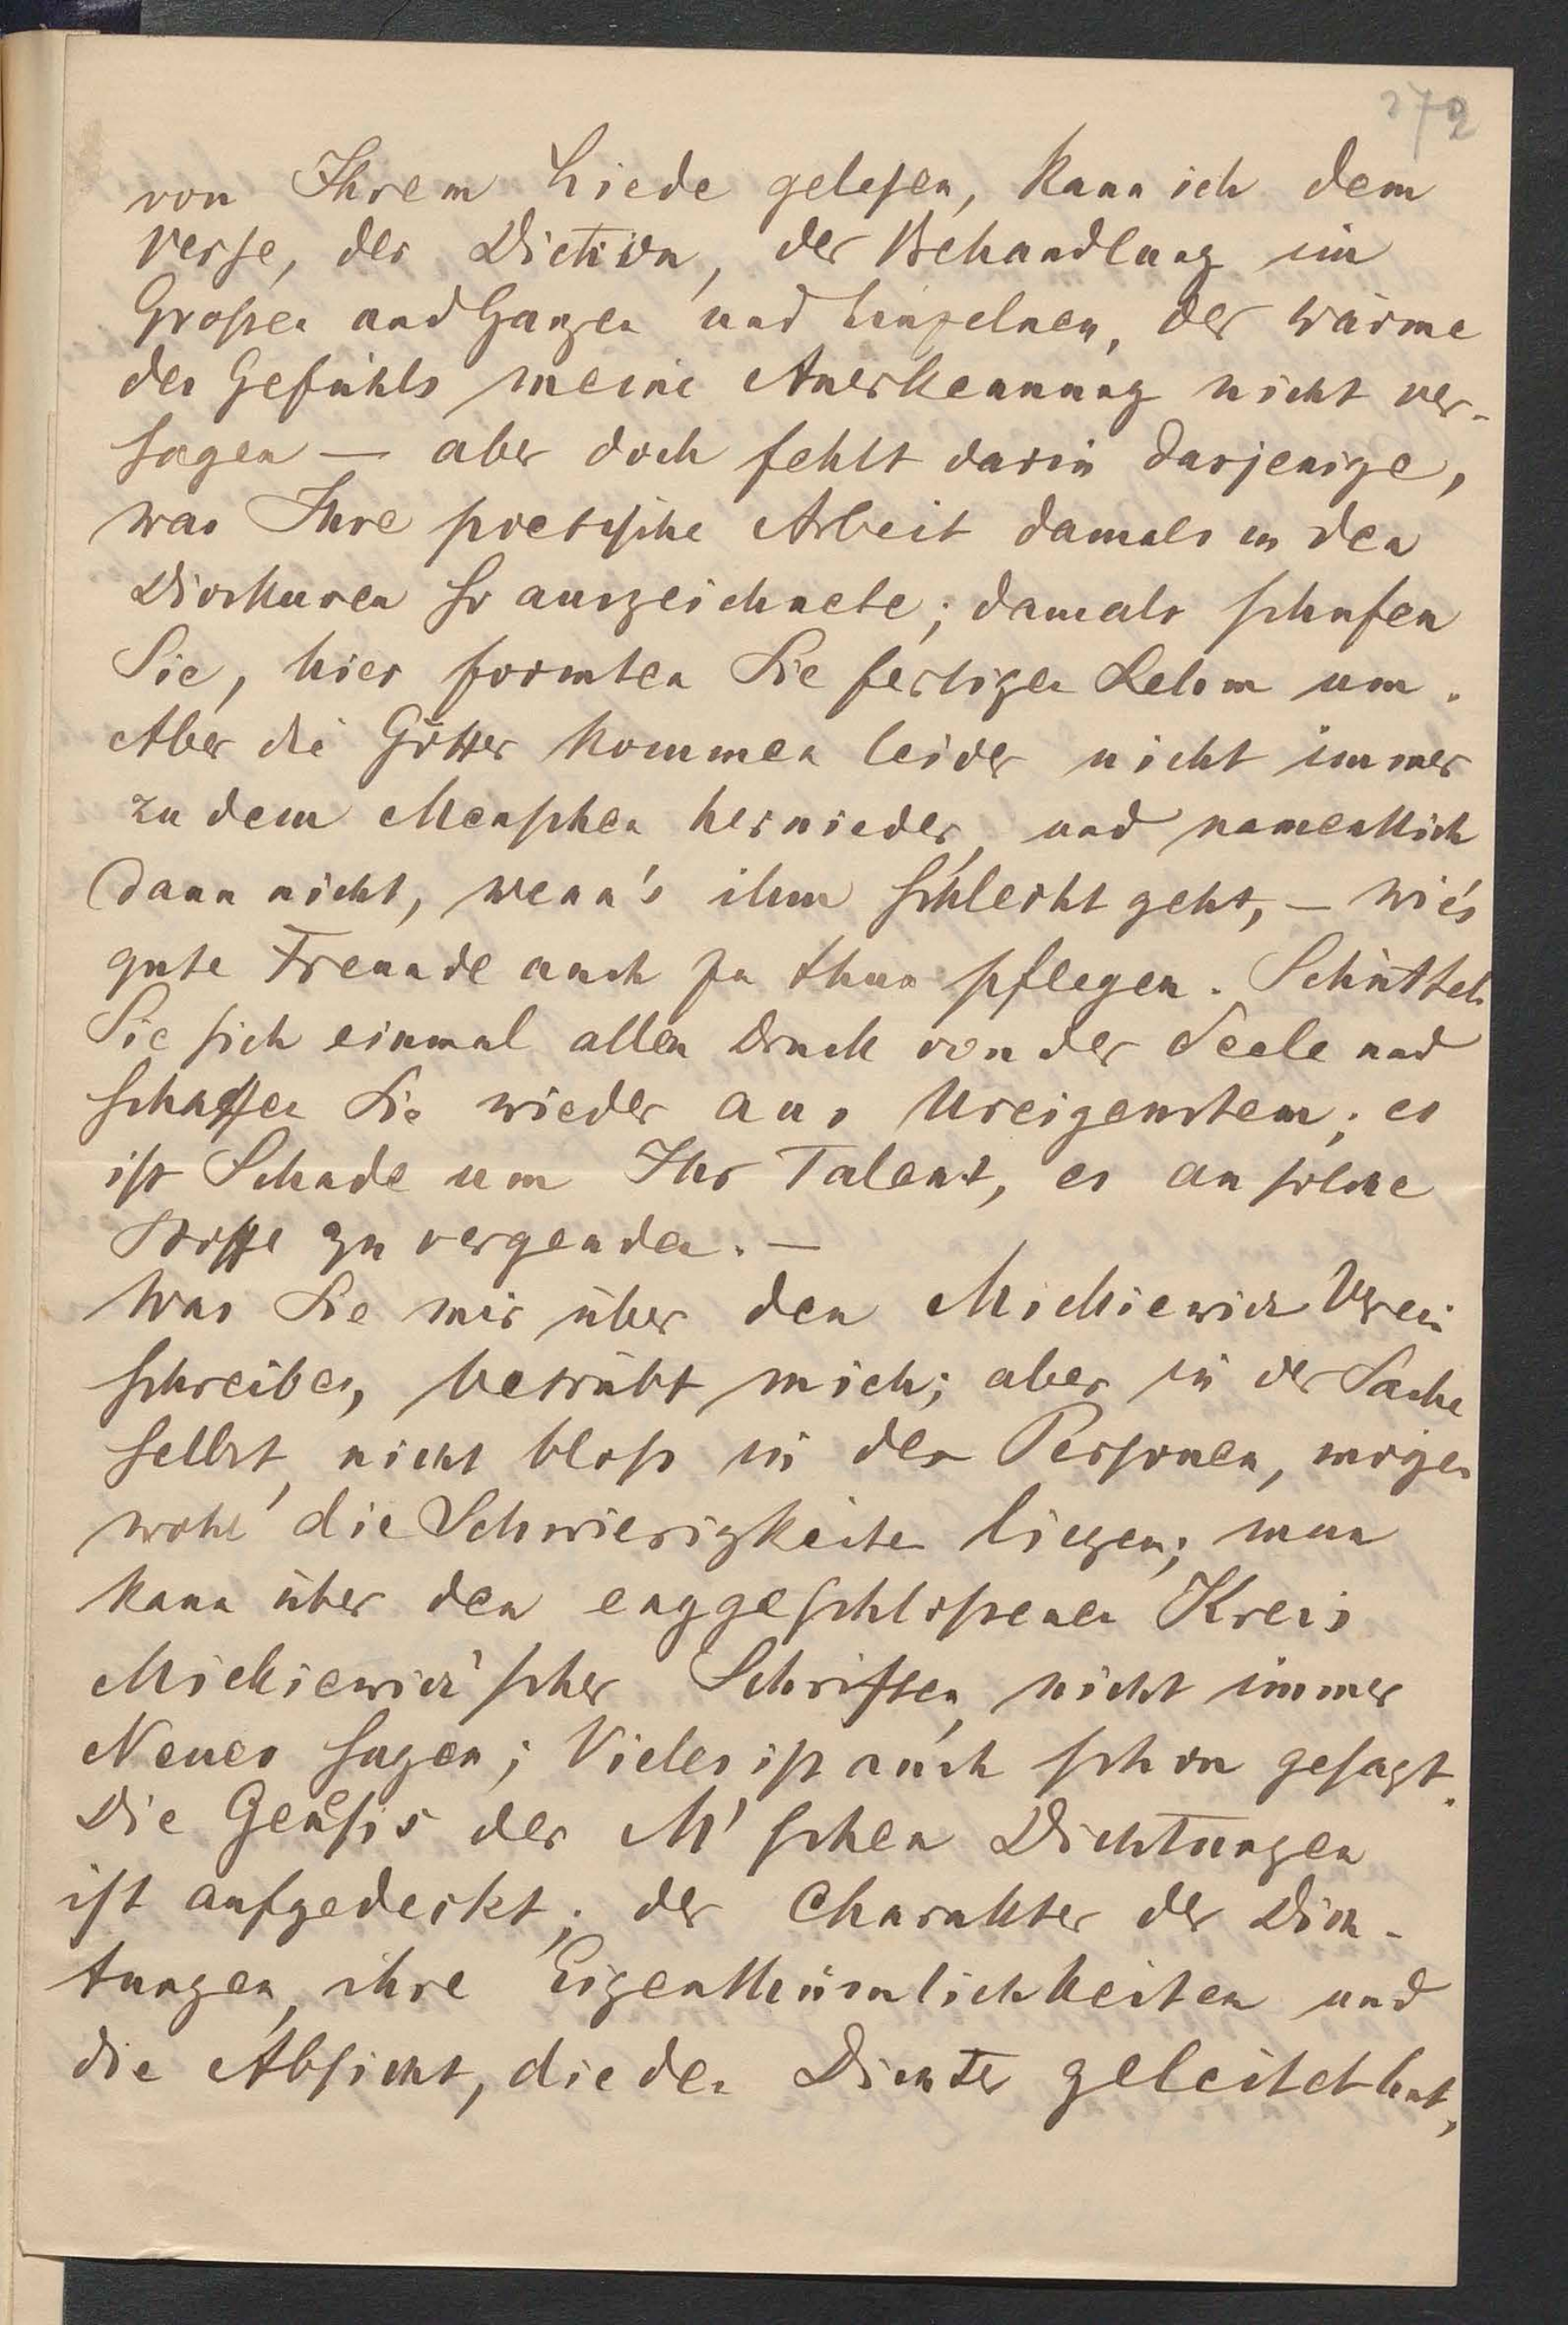 272
von Ihrem Liede gelesen, kann ich dem
Verse, der Diction, der Behandlung im
Großen und Ganzen und Einzelnen, der Wärme
des Gefühls meine Anerkennung nicht ver-
sagen — aber doch fehlt darin dasjenige,
was Ihre poetische Arbeit damals in den
Dioskuren so auszeichnete; damals schufen
Sie, hier formten Sie fertigen Lehm um.
Aber die Götter kommen leider nicht immer
zu dem Menschen hernieder, und namentlich
dann nicht, wenn's ihm schlecht geht, — wie's
gute Freunde auch zu thun pflegen. Schütteln
Sie sich einmal allen Druck von der Seele und
schaffen Sie wieder aus Ureigenstem; es
ist Schade um Ihr Talent, es an solche
Stoffe zu vergeuden. —
Was Sie mir über den Mickiewicz Verein
schreiben, betrübt mich; aber in der Sache
selbst, nicht bloß in den Personen, mögen
wohl die Schwierigkeiten liegen; man
kann über den enggeschlossenen Kreis
Mickiewicz'scher Schriften, nicht immer
Neues sagen; Vieles ist auch schon gesagt.
Die Genesis der M'schen Dichtungen
ist aufgedeckt; der Charakter der Dich-
tungen, ihre Eigenthümlichkeiten und
die Absicht, die den Dichter geleitet hat,